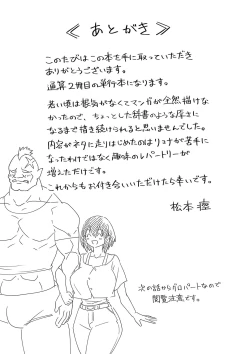 ≪ あとがき ≫
このたびはこの本を手に取っていただき
ありがとうございます。
通算2冊目の単行本になります。
若い頃は根気がなくてマンガが全然描けな
かったので、ちょっとした辞書のような厚さに
なるまで描き続けられると思いませんでした。
内容がネタに走りはじめたのはリョナが苦手に
なったわけではなく趣味のレパートリーが
増えただけです。
これからもお付き合いいただけたら幸いです。
松本痙
次の話からグロパートなので
閲覧注意です。